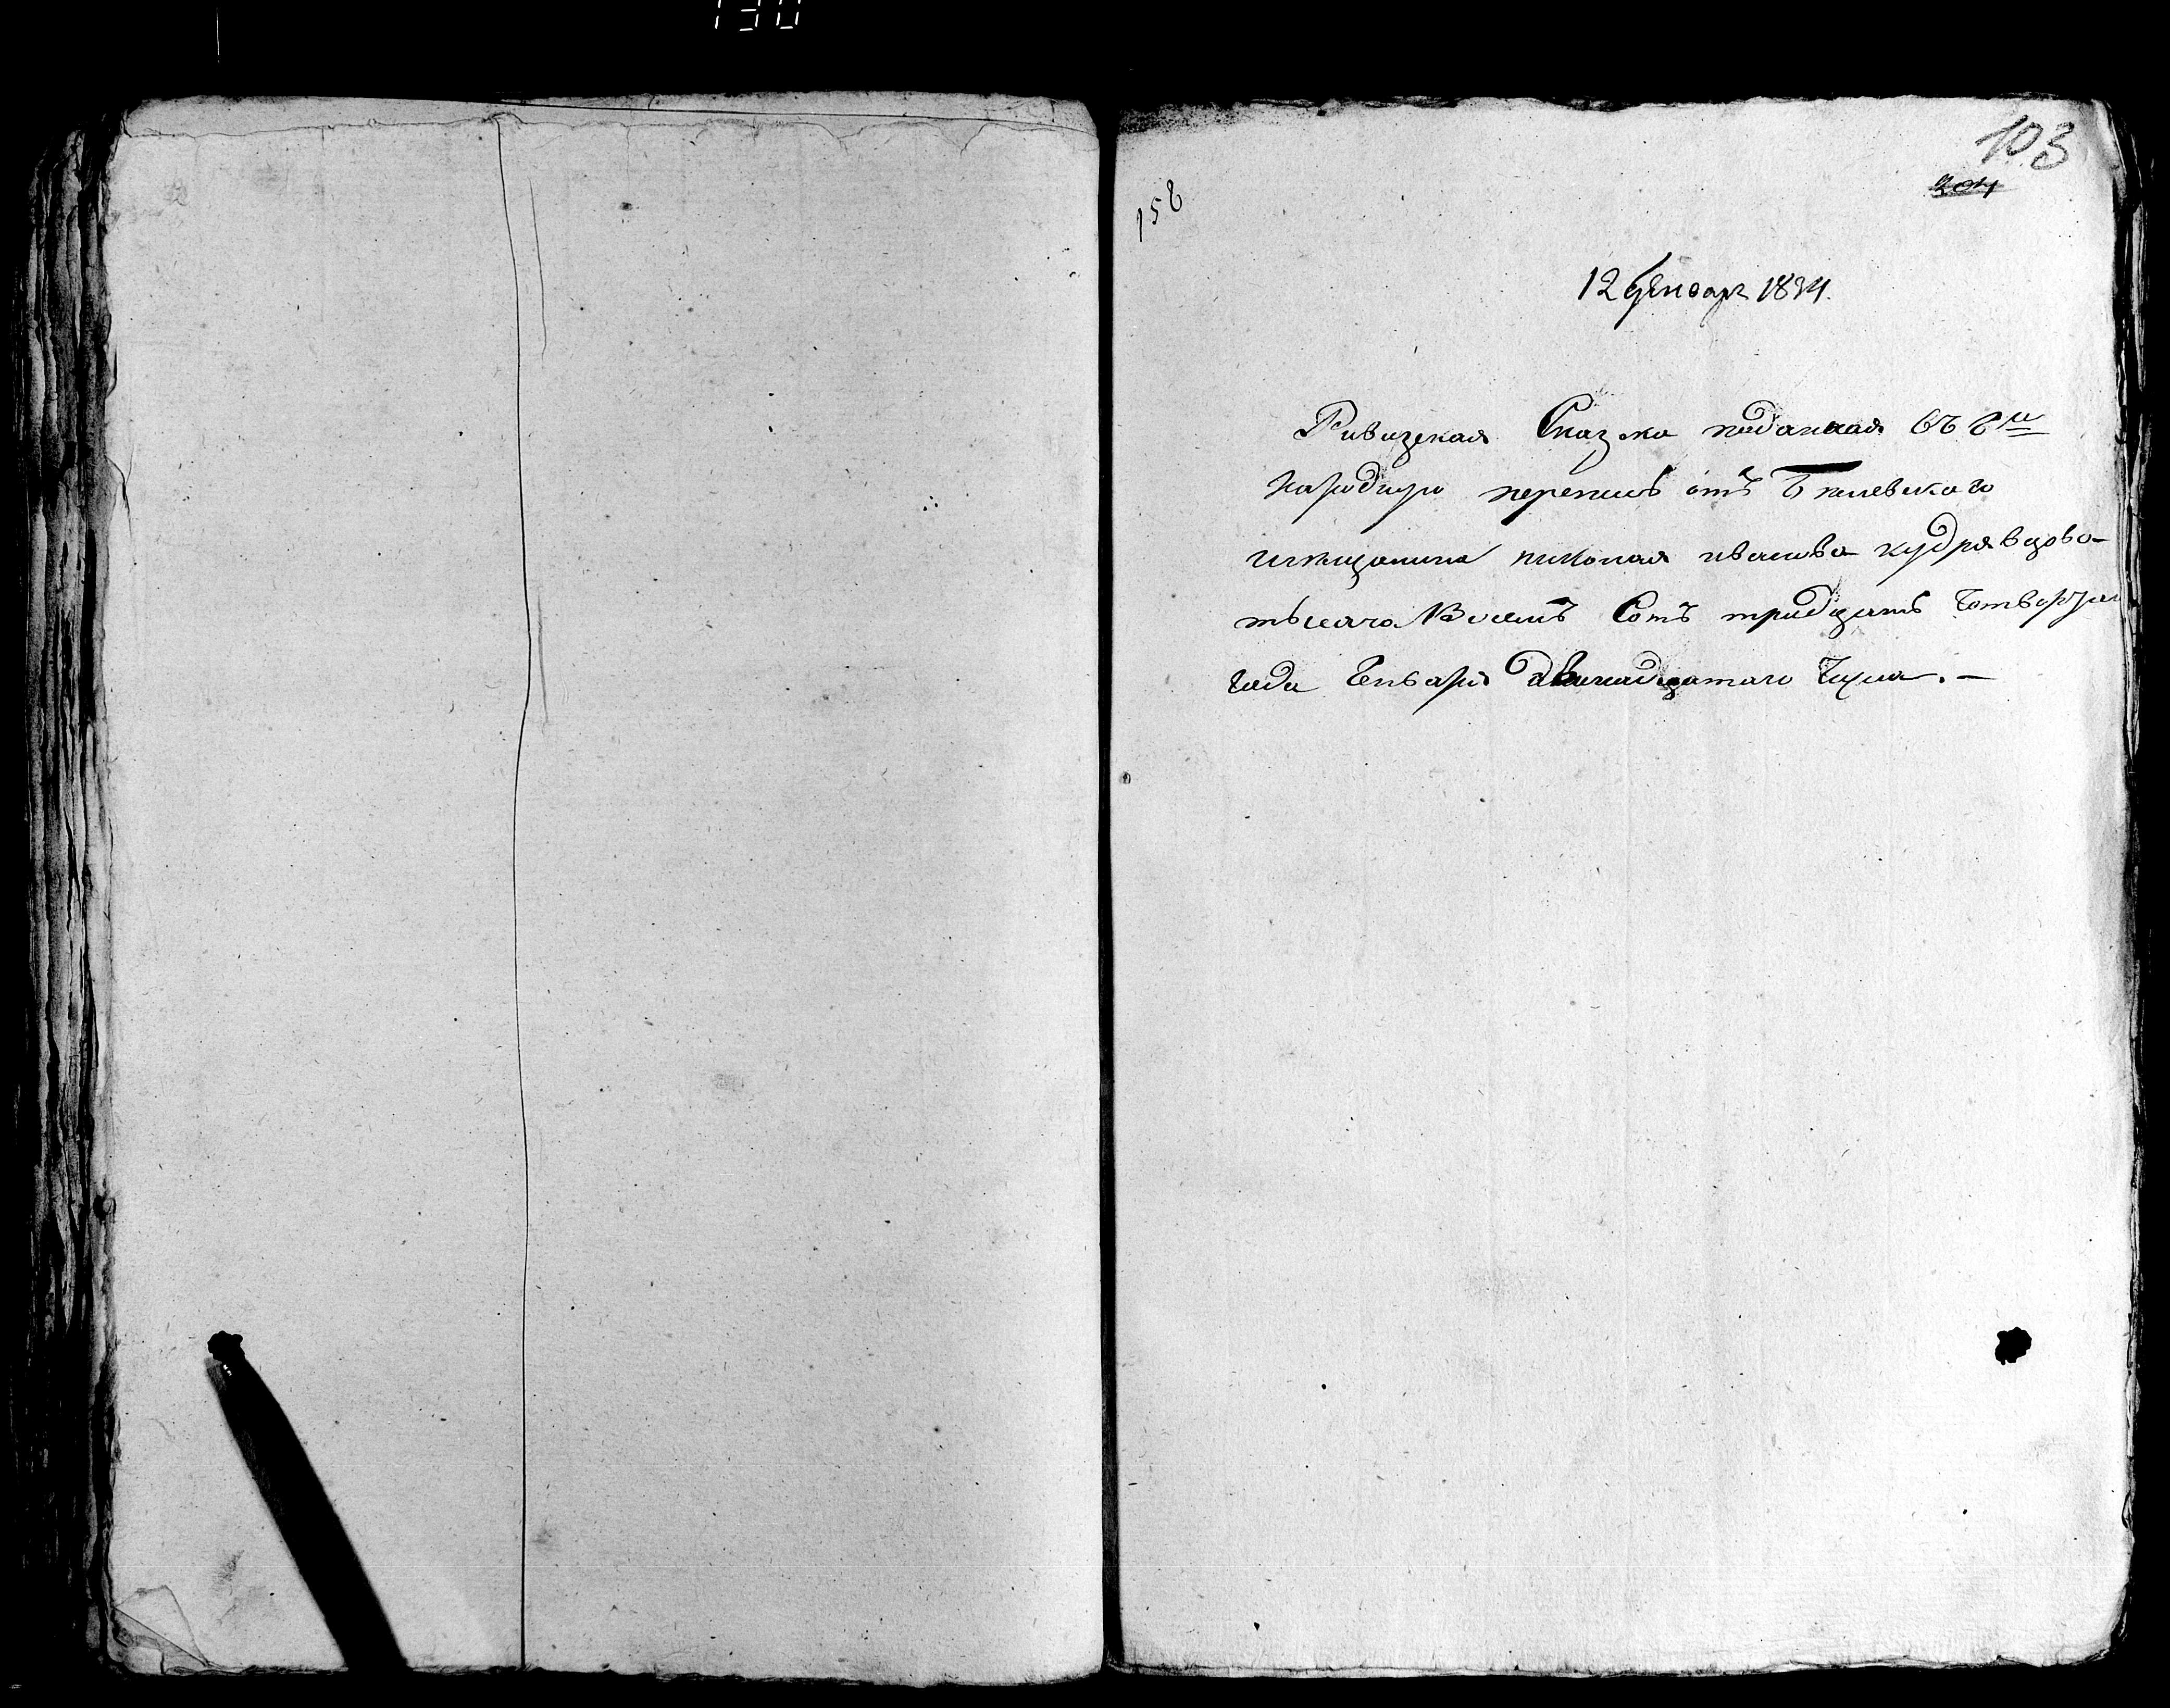 130
103
158
204
12 Генваря 1834.
Ривизская Сказка поданная въ 8ю
народную перепись отъ Белевского
мещанина николая иванова кудрявцова
тысяча Восемъ Сотъ тридцать Четвертаго
года Генваря двенадцатаго Числа. —